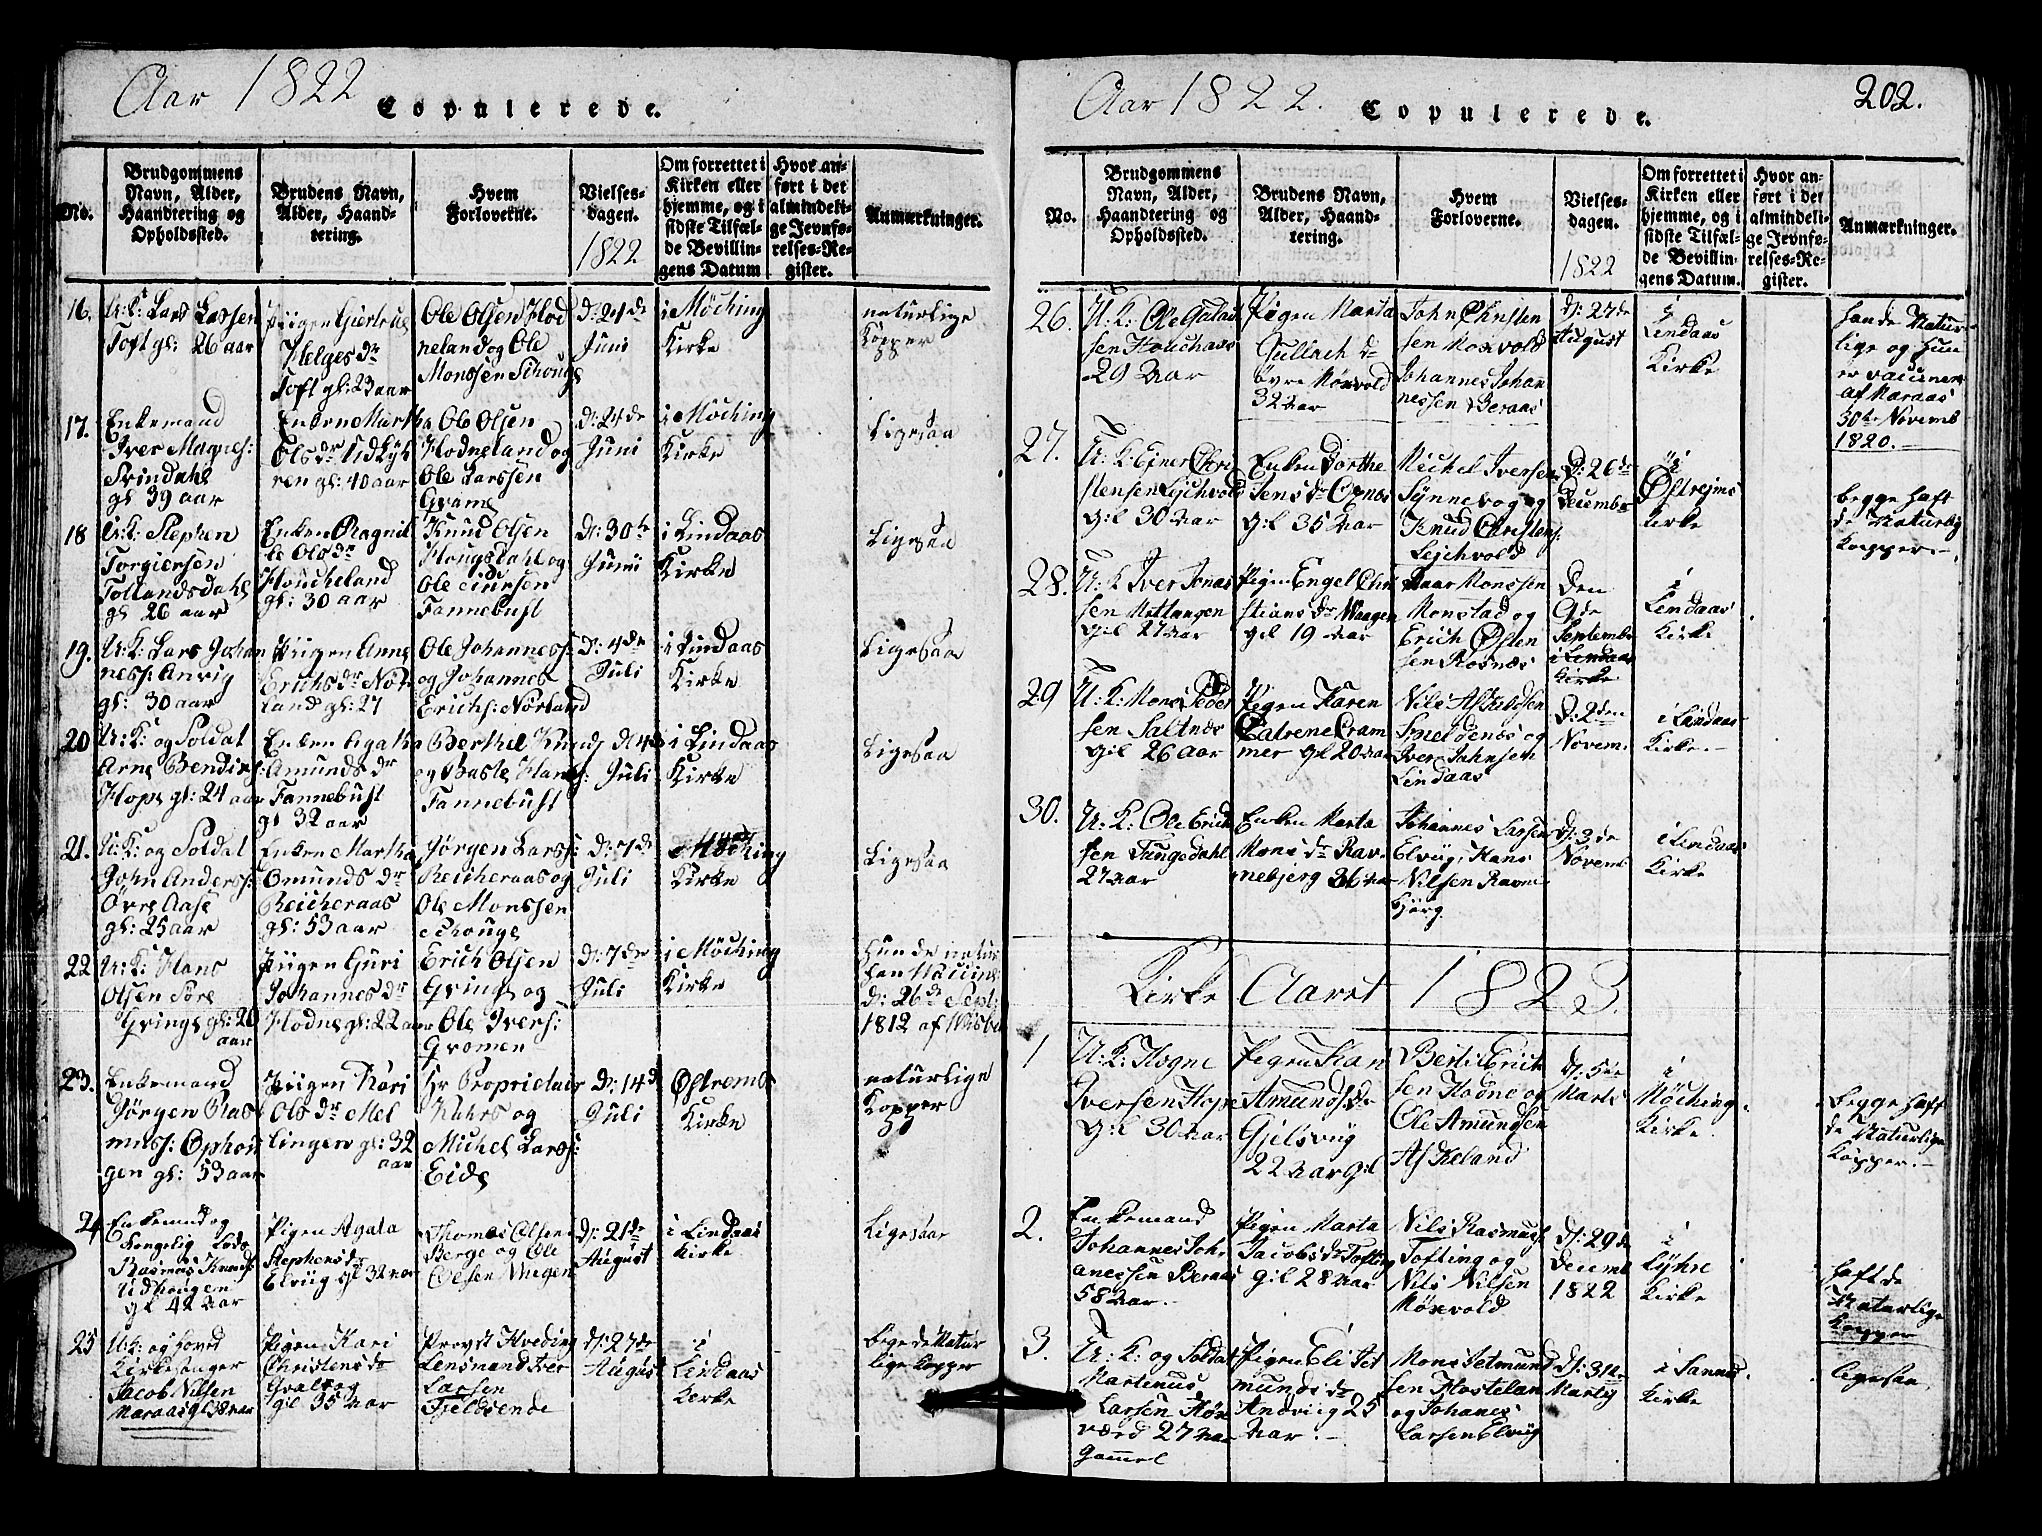 Aar 1822
Copulerede.
No.
Brudgommens
Navn, Alder,
Haandtering og
Opholdssted.
Brudens Navn,
Alder, Haand-
tering.
Hvem
Forloverne.
Vielses-
dagen.
1822
Om forrettet i
Kirken eller
hjemme, og i
sidste Tilfæl-
de Bevillin-
gens Datum
Hvor an-
ført i det
almindeli-
ge Jevnfø-
relses-Re-
gister.
Anmærkninger.
16.
U:K: Lars Larsen
Toft gl: 26 aar
Piigen Giertrud
Helges dr
Toft gl: 23 aar
Ole Olsen Hod
neland og Ole
Monssen
d: 21de
Juni
i Möching
Kirke
naturlige
Kopper
17.
Enkemand
Iver Magnes:
Svindahl
gl 39 aar
Enken Martha
Ols dr
gl: 40 aar
Ole Olsen
Hodneland og
Ole Larssen
d: 24de
Juni
i Möching
Kirke
Ligesaa
18
U:K: Stephen
Torgiersen
gl 26 aar
Enken Ragnil
de Ols dr
Houcheland
gl: 30 aar
Knud Olsen
Hougsdahl og
Ole
Fannebust
d: 30te
Juni
i Lindaas
Kirke
Ligesaa
19.
U:K: Lars Johan
ness: Anvig
gl: 30 aar
Piigen Anne
Erichs dr Nor
land gl: 27
Ole Johanness:
og Johannes
Erichs: Norland
d: 4de
Juli
i Lindaas
Kirke
Ligesaa
20
U:K: og Soldat
Arne Bendix:
Hope gl: 24 aar
Enken Agatha
Amunds dr
Fannebust
gl 32 aar
Berthel Knuds
og Baste Hans:
Fannebust
d: 4de
Juli
i Lindaas
Kirke
Ligesaa
21.
U:K: og Soldat
John Anderss:
Övre Aase
gl: 25 aar
Enken Martha
Omunds dr
Reicheraas
gl: 53 aar
Jörgen Larss:
Reicheraas og
Ole Monssen
Schouge
d: 7de
Juli
i Möching
Kirke
Ligesaa
22
U:K: Hans
Olsen Söre
Gringe gl: 26
aar
Piigen Guri
Johannes dr
Hodne gl: 22 aar
Erich Olsen
Gringe og
Ole Ivers:
Gromen
d: 7de
Juli
i Möching
Kirke
d: 26de Sept:
1812 af
23.
Enkemand
Jörgen Ras
muss: Ophou
gen gl: 53 aar
Piigen Kari
Ols dr Mel
lingen gl: 32
aar
Hr Proprietair
Kahrs og
Michel Larss:
Eide
d: 14de
Juli
Östrembs
Kirke
naturlige
Kopper
24
Enkemd og
Kongelig Lods
Rasmus Knuds
gl 42 aar
Pigen Agata
Stephens dr
Elvüg gl 32 aar
Thomas Olsen
Berge og Ole
Olsen
d: 21de
August
i Lindaas
Kirke
Ligesaa
25
U:K: og
Kirkesanger
Jacob Nilsen
Maraas gl 38 aar
Pigen Kari
Christens dr
Qvalvog
gl 35 aar
Provst Hveding
Lensmand Iver
Larsen
Fjeldsende
d: 27de
August
i
Lindaas
Kirke
begge Natur
lige Kopper
Aar 1822.
Copulerede.
202.
No.
Brudgommens
Navn, Alder,
Haandtering og
Opholdssted.
Brudens Navn,
Alder, Haand-
tering.
Hvem
Forloverne.
Vielses-
dagen.
1822
Om forrettet i
Kirken eller
hjemme, og i
sidste Tilfæl-
de Bevillin-
gens Datum.
Hvor an-
ført i det
almindeli-
ge Jevnfø-
relses-Re-
gister.
Anmærkninger.
26.
U: K: Ole
sen Houchaas
29 Aar
Pigen Marta
Gullach dr
övre Morvold
32 Aar
John Christen
sen Morvold
Johannes Johan
nessen Beraas
d: 27de
August
i
Lindaas
Kirke
hande Natur
lige og hun
er vaccineret
af Maraas
30te Novemb
1820.
27.
U: K: Ejner Chri
stensen Lejchvold
gil 30 Aar
Enken Dorthe
Jens dr
gil 35 Aar
Michel Iversen
Synnevog og
Knud Christens:
Lejchvold
d: 26de
December
i
Östrejms
Kirke
begge haft
de Naturlig
Kopper.
28.
U: K Iver Jonas
sen
gil 27 Aar
Pigen Engel Chri
stians dr Waagen
gil 19 Aar
Monssen
Monstad og
Erich Östen
sen Rosnæs
Den
9de
Septembr
i Lindaas
Kirke
i
Lindaas
Kirke
29
U: K: Mons Peder
sen Saltnes
gil 26 Aar
Pigen Karen
Catrene Cram
mer gl 20 Aar
Nils
og
Iver Johnsen
Lindaas
d: 2den
Novem:
i Lindaas
Kirke.
30.
U: K: Ole Erich
sen Tungedahl
27 Aar
Enken Marta
Mons dr Rav
nebjerg 36 Aar
Johannes Larsen
Elvüg, Hans
Nilsen Ravne
björg
d: 3de
Novem:
i Lindaas
Kirke
Kirke Aaret 1823.
1
U: K: Hogne
Iversen Hope
gil 30 Aar
Pigen Kari
Amunds dr
Gjelsvüg
22 Aar gil
Berli Erich
sen Hodne og
Ole Amundsen
Askeland
d: 5te
Marts
i
Möching
Kirke.
Begge haft
de Naturlige
Kopper.
2.
Enkemand
Johannes Joh
anessen Beraas
58 Aar.
Pigen Marta
Jacobs dr Tofting
gil 28 Aar
Nils Rasmus:
Tofting og
Nils Nilsen
Morvold
d: 29de
Decemb
1822
i
Lÿhre
Kirke
hafte de
Naturlige
Kopper
3.
U: K: og Soldat
Martinus
Larsen
27 Aar
Gammel
Pigen Eli Tit
munds dr
Andviig 25
Aar.
Mons Titmund
sen Hostelan
og Johanes
Larsen Elvüg
d: 31te
Marty
i
Kirke
Ligesaa